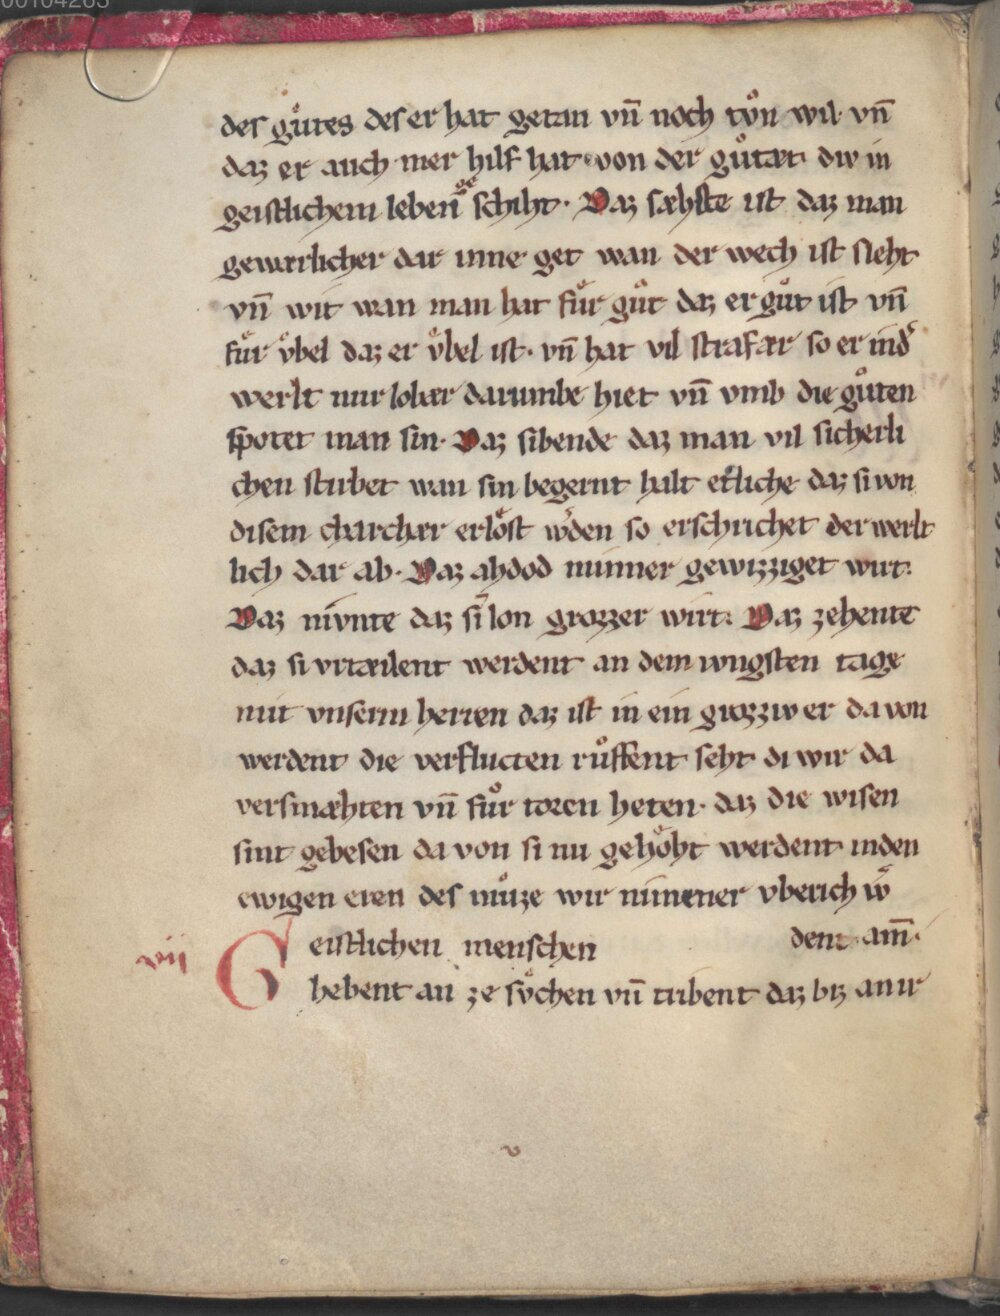 00104265
des gůtes des er hat getan vn̄ noch tv̊n wil vn̄
daz er auch mer hilf hat von der gůtæt diw in
geistlichem leben geschiht. Daz sæhste ist daz man
gewærlicher dar inne get wan der wech ist sleht
vn̄ wit wan man hat fůr gůt daz er gůt ist vn̄
fůr v̊bel daz er v̊bel ist. vn̄ hat vil strafær so er in d᾽
werlt nur lobær darumbe hiet vn̄ vmb die gůten
spotet man sin. Daz sibende daz man vil sicherli
chen stirbet wan sin begernt halt etliche daz si von
disem charchær erlo̊st w᾽den so erschrichet der werlt
lich dar ab. Daz ahdod minner gewizziget wirt.
Daz nivnte daz si lon grozzer wirt. Daz zehente
daz si vrtæilent werdent an dem iungsten tage
mit vnserm herren daz ist in ein grozziw er da von
werdent die verflucten růffent seht di wir da
versmæhten vn̄ fůr toren heten. daz die wisen
sint gebesen da von si nu geho̊ht werdent in den
ewigen eren des můze wir nimmer vberich w᾽
dent am̄.
vii
Geistlichen menschen
hebent an ze sv̊chen vn̄ tribent daz biz an ir
v